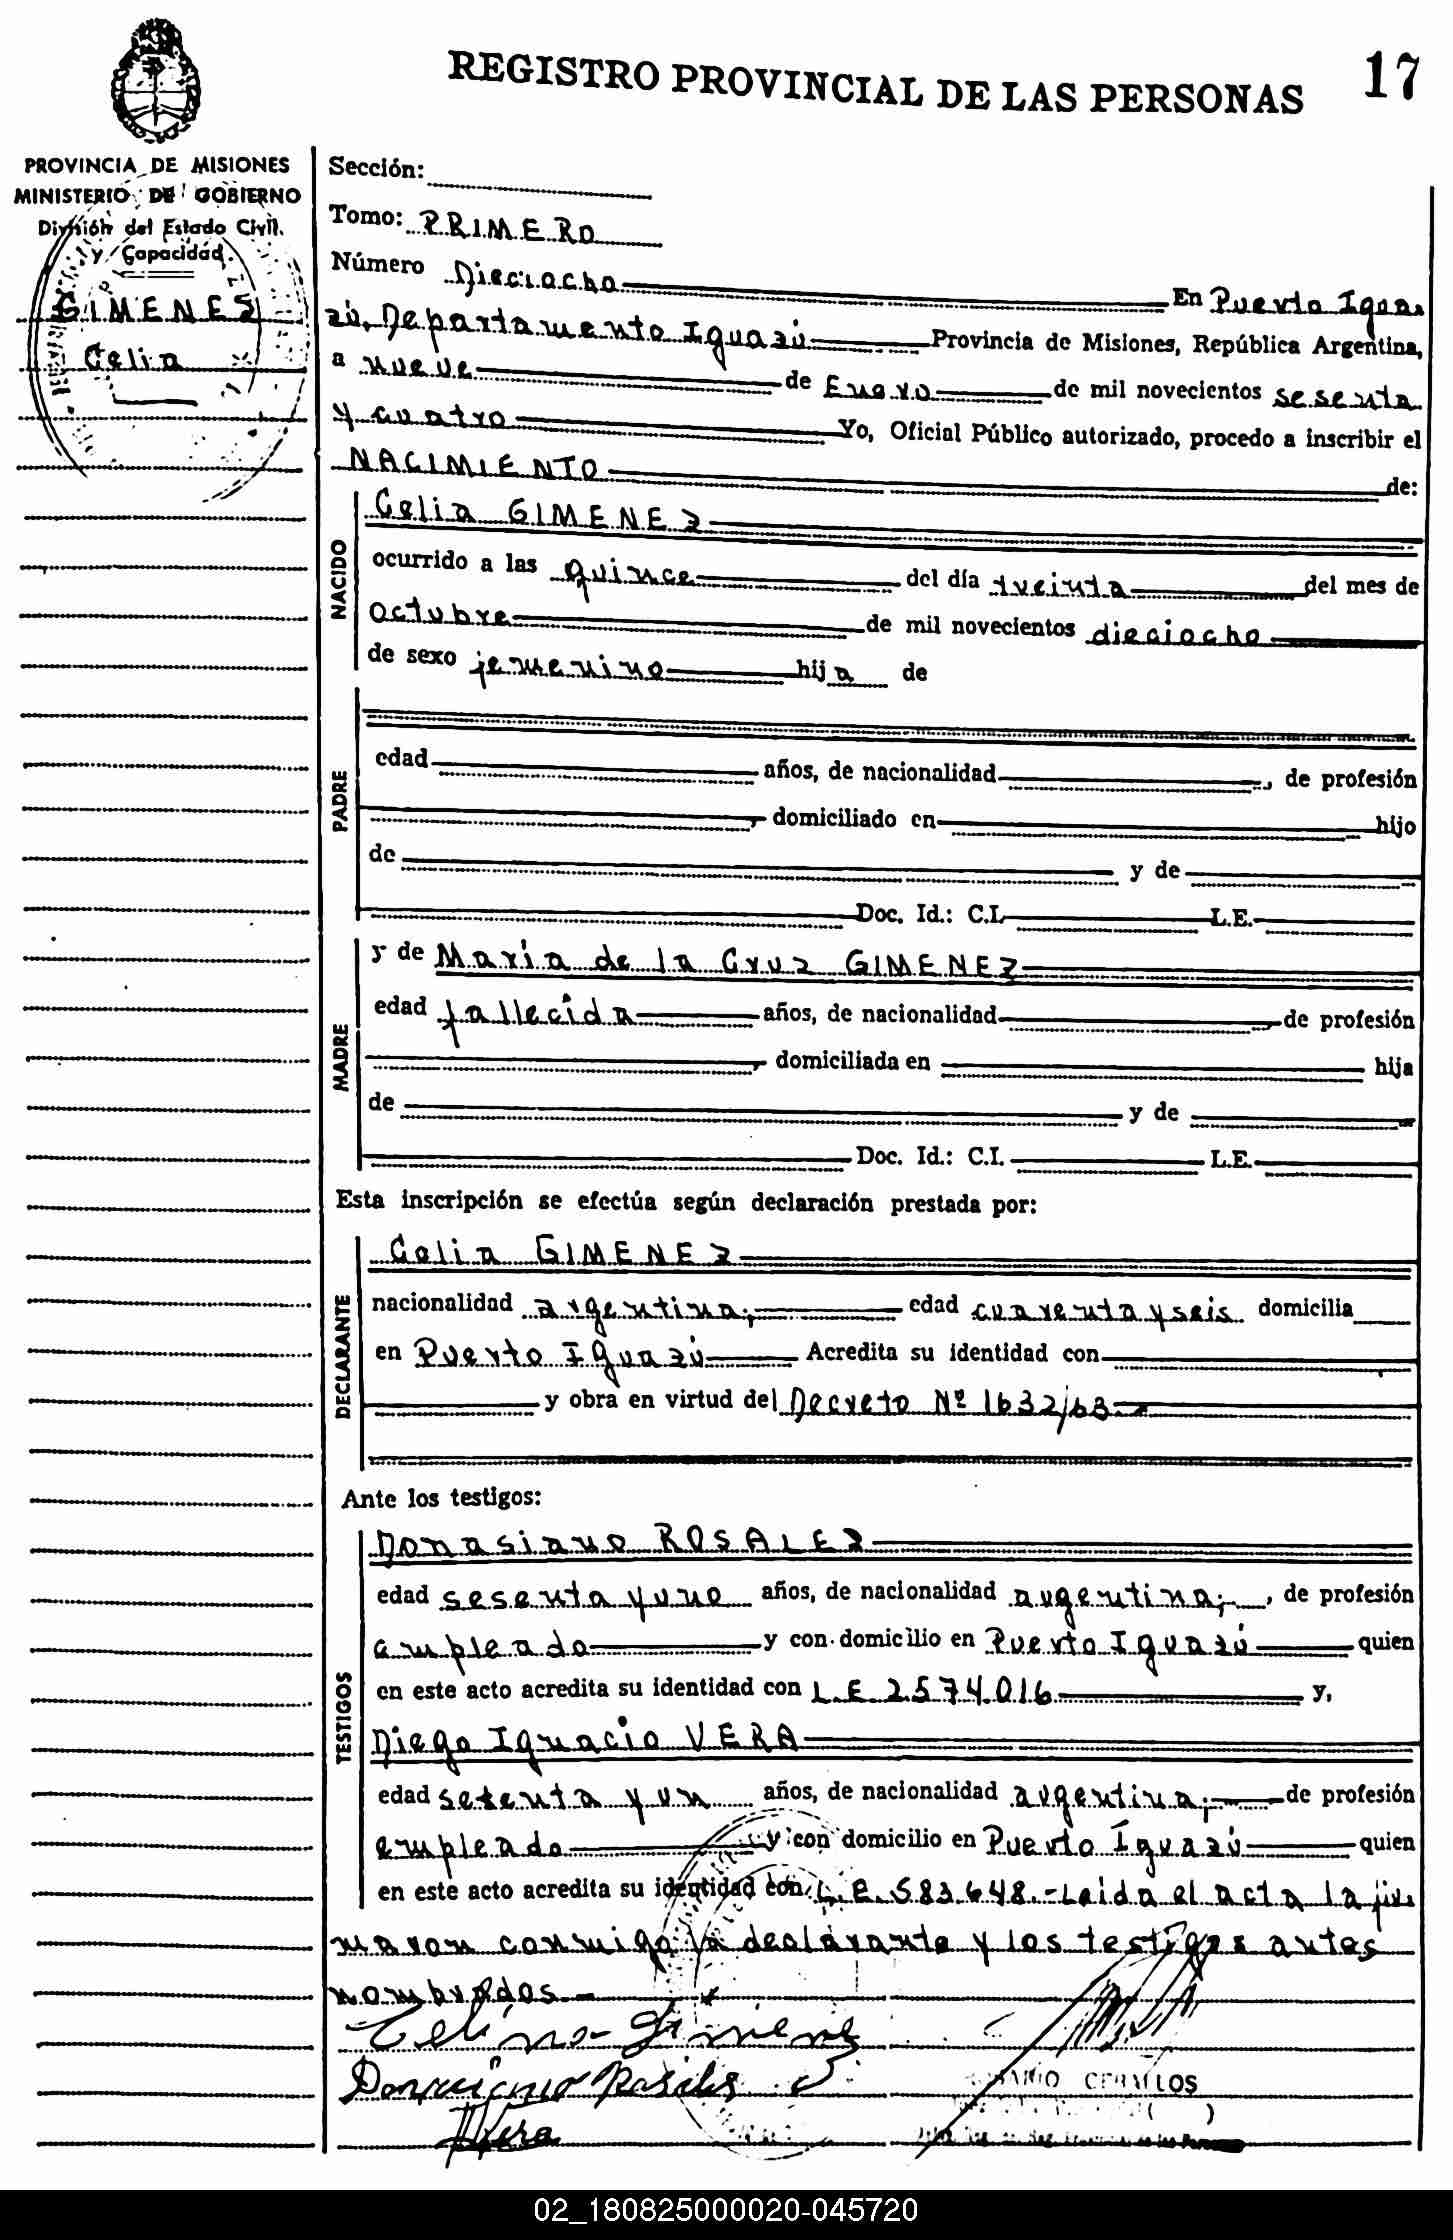 REGISTRO PROVINCIAL DE LAS PERSONAS 17
PROVINCIA DE MISIONES
MINISTERIO DE GOBIERNO
División del Estado Civil
y Capacidad
GIMENEZ
Celia
Sección:
Tomo: PRIMERO
Número Dieciocho En Puerto Igua-
zú, Departamento Iguazú Provincia de Misiones, República Argentina,
a nueve de Enero de mil novecientos sesenta
y cuatro Yo, Oficial Público autorizado, procedo a inscribir el
NACIMIENTO de:
NACIDO
Celia GIMENEZ
ocurrido a las quince del día treinta del mes de
octubre de mil novecientos dieciocho
de sexo femenino hija de
PADRE
edad años, de nacionalidad , de profesión
, domiciliado en hijo
de y de
Doc. Id.: C.I. L.E.
MADRE
y de Maria de la Cruz GIMENEZ
edad fallecida años, de nacionalidad , de profesión
, domiciliada en hija
de y de
Doc. Id.: C.I. L.E.
Esta inscripción se efectúa según declaración prestada por:
DECLARANTE
Celia GIMENEZ
nacionalidad argentina; edad cuarenta y seis domicilia
en Puerto Iguazú Acredita su identidad con
y obra en virtud del Decreto Nº 1632/63.-
Ante los testigos:
TESTIGOS
Donasiano ROSALEZ
edad sesenta y uno años, de nacionalidad argentina; , de profesión
empleado y con domicilio en Puerto Iguazú quien
en este acto acredita su identidad con L.E 2.574.016 y,
Diego Ignacio VERA
edad setenta y un años, de nacionalidad argentina; de profesión
empleado y con domicilio en Puerto Iguazú quien
en este acto acredita su identidad con L.E. 583.648.- Leida el acta la fir-
maron conmigo la declarante y los testigos antes
nombrados.-
Celina Gimenez
Donaciano Rosales
Vera
CEBALLOS
02_180825000020-045720